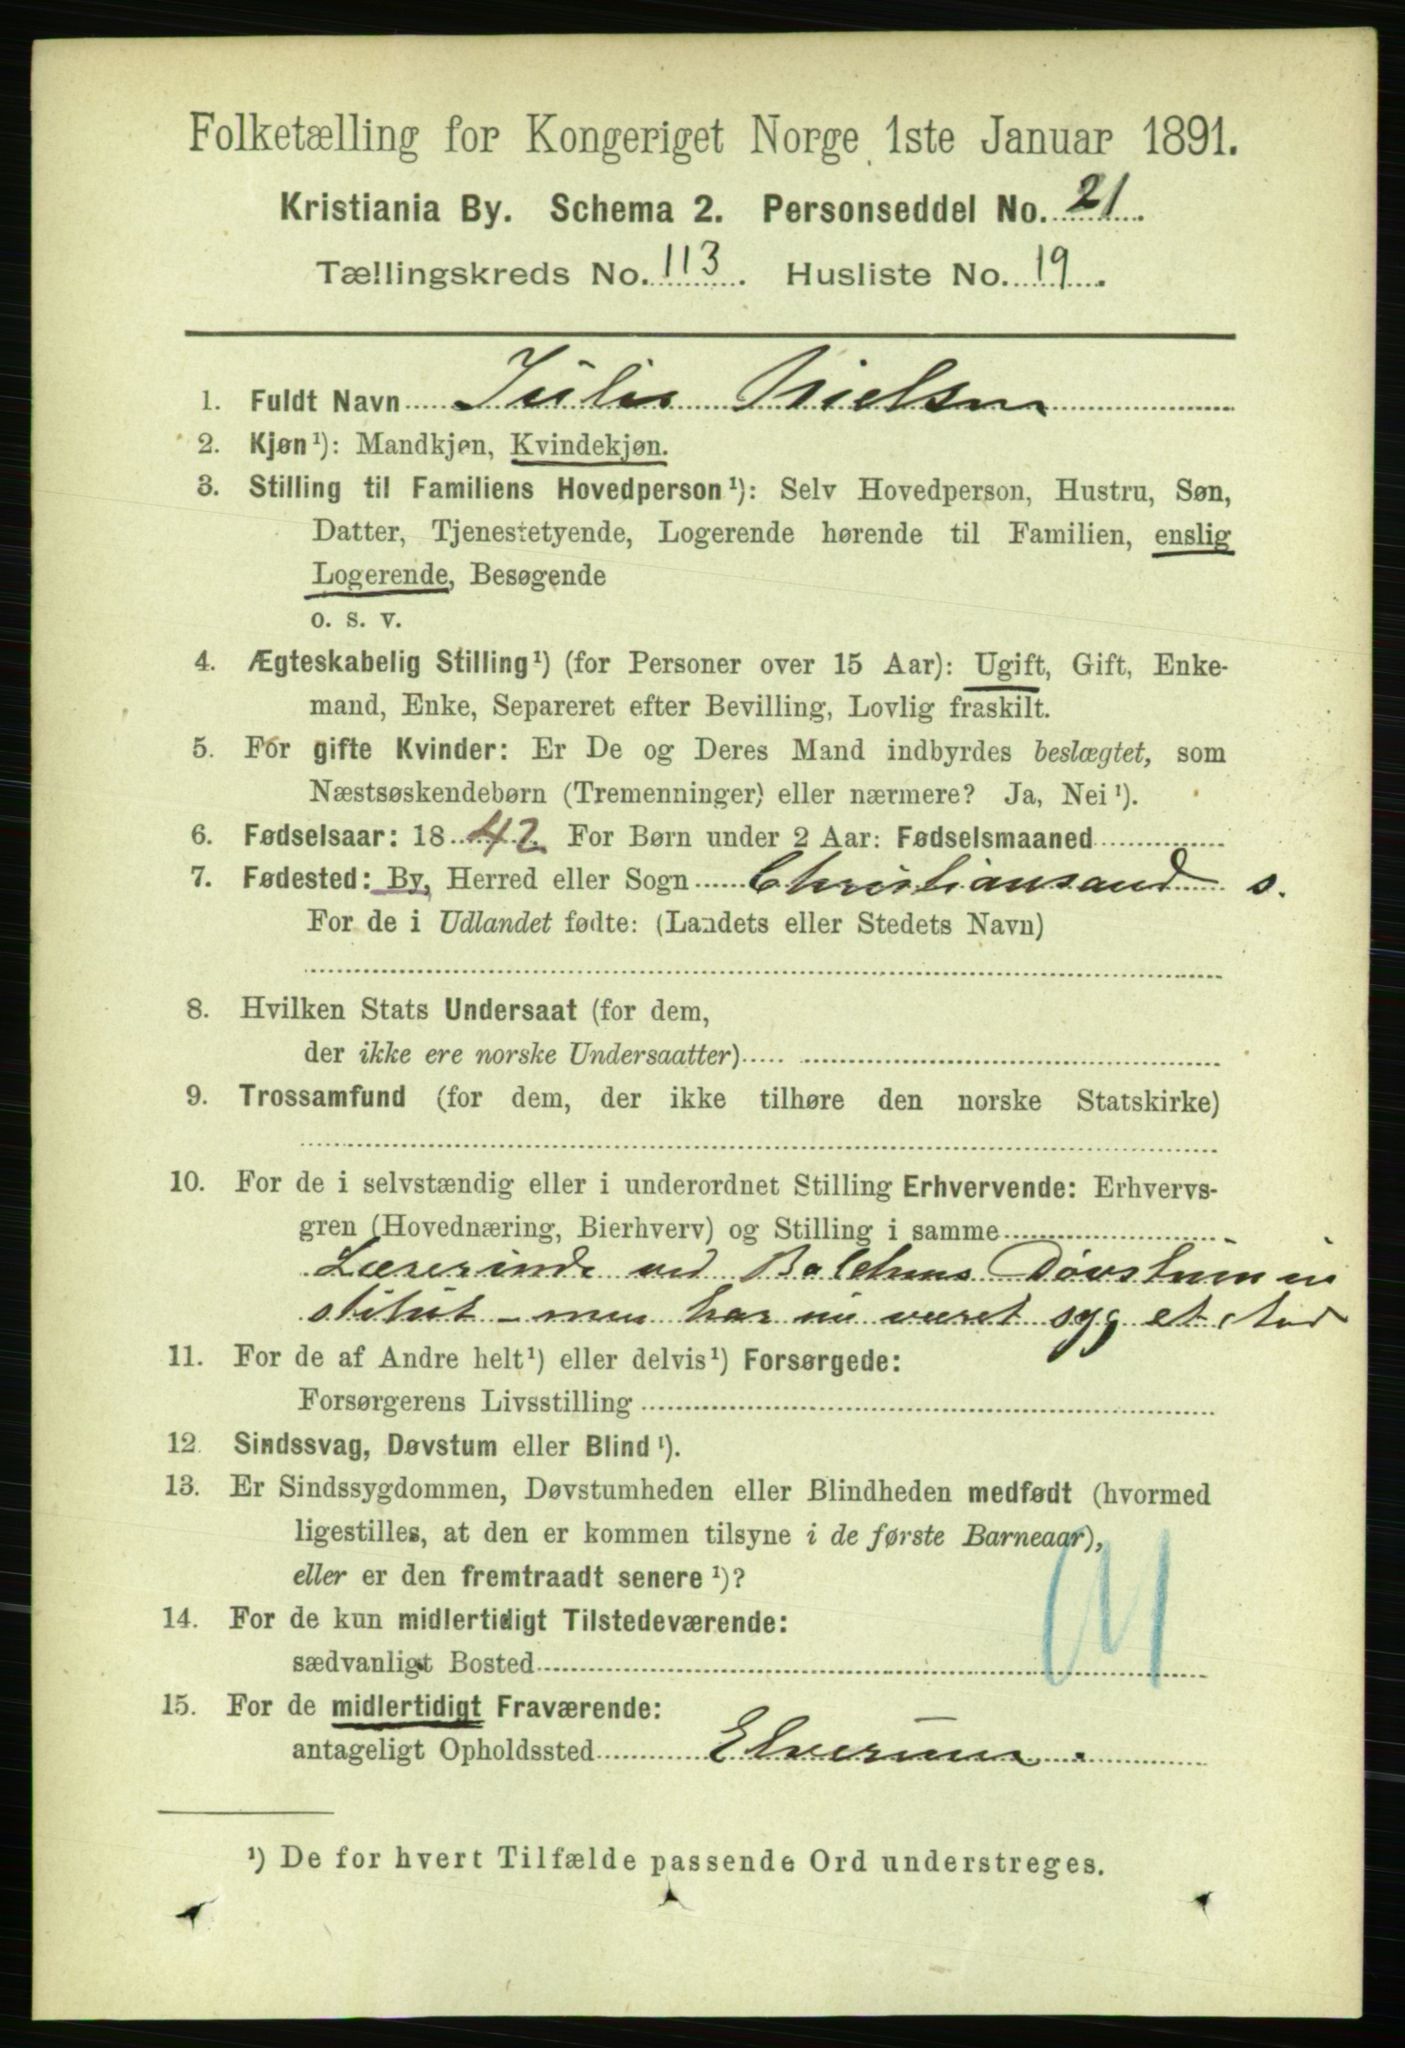 Folketælling for Kongeriget Norge 1ste Januar 1891.
Kristiania By. Schema 2. Personseddel No. 21.
Tællingskreds No. 113. Husliste No. 19.
1. Fuldt Navn Julie Nielsen
2. Kjøn ¹): Mandkjøn, Kvindekjøn.
3. Stilling til Familiens Hovedperson ¹): Selv Hovedperson, Hustru, Søn,
Datter, Tjenestetyende, Logerende hørende til Familien, enslig
Logerende, Besøgende
o. s. v.
4. Ægteskabelig Stilling ¹) (for Personer over 15 Aar): Ugift, Gift, Enke-
mand, Enke, Separeret efter Bevilling, Lovlig fraskilt.
5. For gifte Kvinder: Er De og Deres Mand indbyrdes beslægtet, som
Næstsøskendebørn (Tremenninger) eller nærmere? Ja, Nei ¹).
6. Fødselsaar: 1842. For Børn under 2 Aar: Fødselsmaaned
7. Fødested: By, Herred eller Sogn Christiansand s.
For de i Udlandet fødte: (Landets eller Stedets Navn)
8. Hvilken Stats Undersaat (for dem,
der ikke ere norske Undersaatter)
9. Trossamfund (for dem, der ikke tilhøre den norske Statskirke)
10. For de i selvstændig eller i underordnet Stilling Erhvervende: Erhvervs-
gren (Hovednæring, Bierhverv) og Stilling i samme
Lærerinde ved Balchens Døvstumin
stitut - men har nu været syg et Aar
11. For de af Andre helt ¹) eller delvis ¹) Forsørgede:
Forsørgerens Livsstilling
12. Sindssvag, Døvstum eller Blind ¹).
13. Er Sindssygdommen, Døvstumheden eller Blindheden medfødt (hvormed
ligestilles, at den er kommen tilsyne i de første Barneaar),
eller er den fremtraadt senere ¹)?
14. For de kun midlertidigt Tilstedeværende:
sædvanligt Bosted
15. For de midlertidigt Fraværende:
antageligt Opholdssted Elverum.
¹) De for hvert Tilfælde passende Ord understreges.